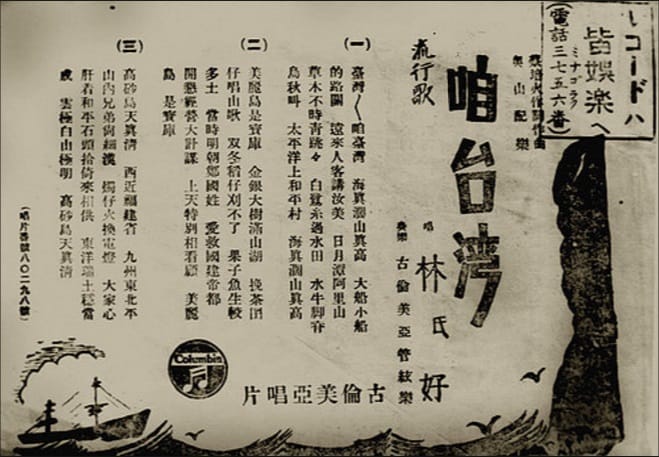 レコードハ
皆娯楽へ
ミナゴラク
(電話三七五六番)
蔡培火作詞作曲
奧山配樂
流行歌
咱台灣
唱 林氏好
奏樂 古倫美亞管絃樂
(一)
臺灣〱咱臺灣 海真濶山真高 大船小船
的路關 遠來人客講汝美 日月潭阿里山
草木不時青跳々 白鷺糸過水田 水牛脚脊
烏秋叫 太平洋上和平村 海真濶山真高
(二)
美麗島是寶庫 金銀大樹滿山湖 挽茶囝
仔唱山歌 双冬稻仔刈不了 果子魚生較
多土 當時明朝鄭國姓 愛救國建帝都
開懇經營大計謀 上天特別相看顧 美麗
島 是寶庫
(三)
高砂島天真清 西近福建省 九州東北平
山內兄弟尚細漢 燭仔火換電燈 大家心
肝着和平石頭拾倚來相供 東洋瑞士穩當
成 雲極白山極明 高砂島天真清
(唱片番號八〇二九八號)
Columbia
古倫美亞唱片